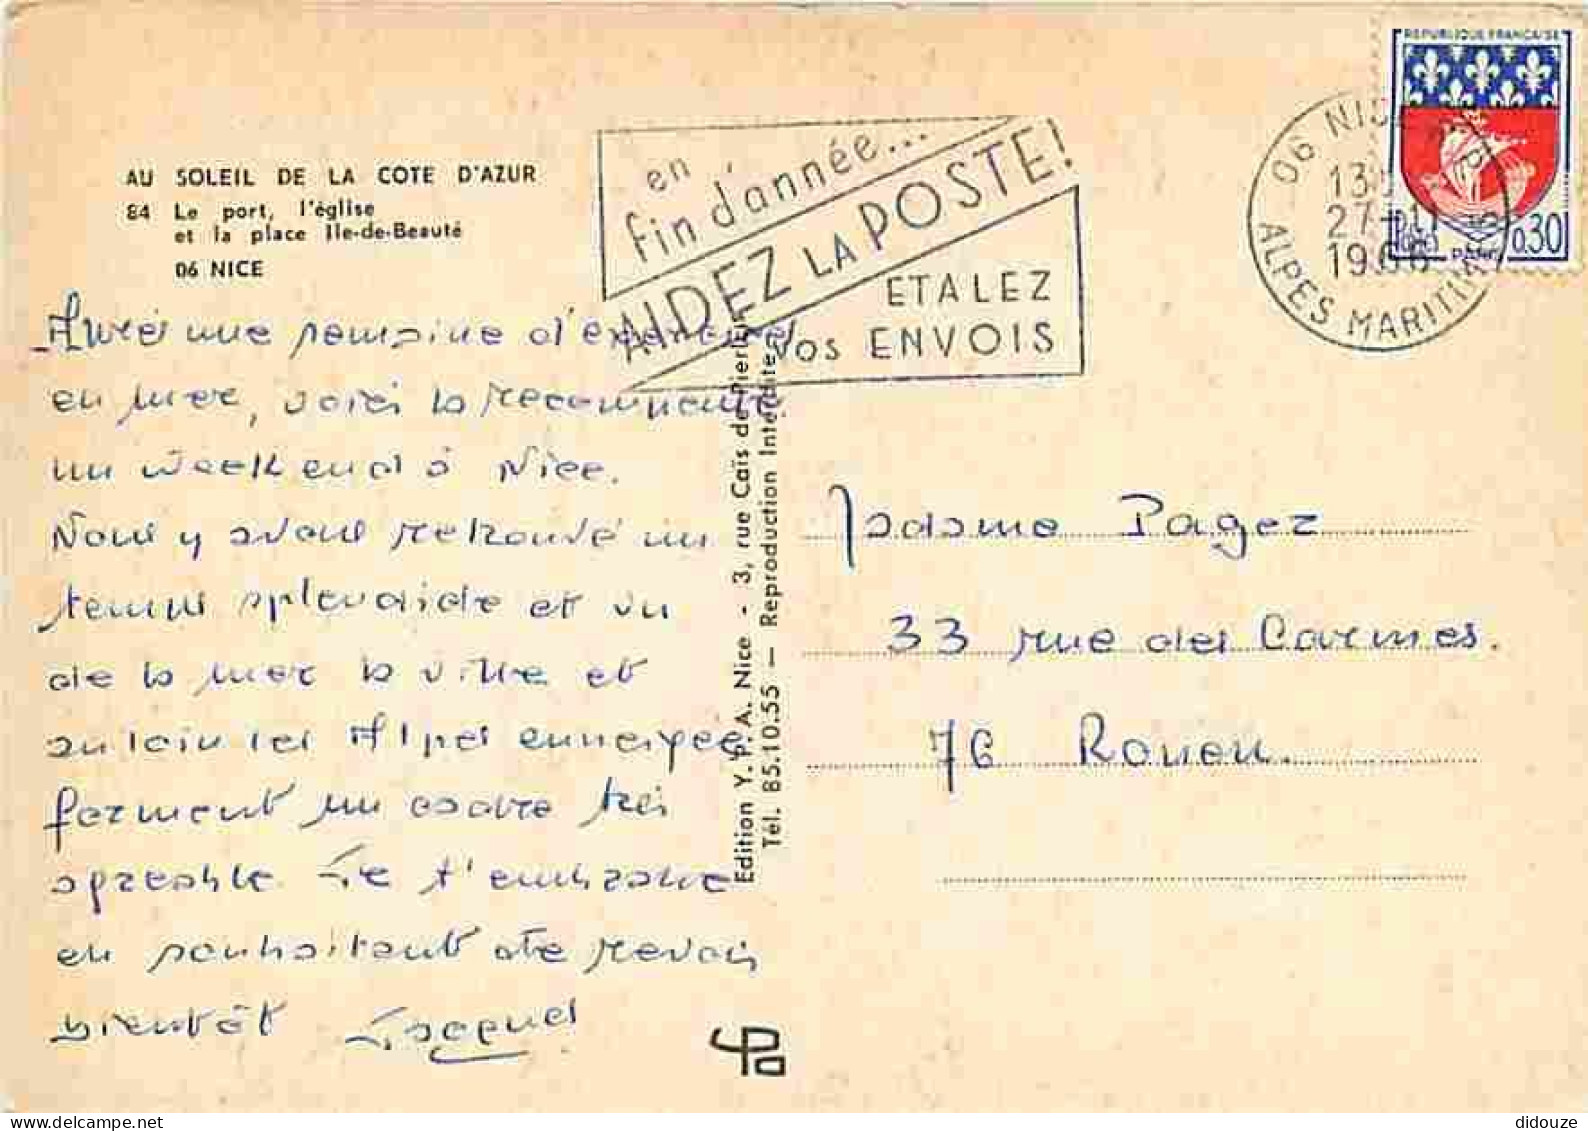 REPUBLIQUE FRANÇAISE
0,30
PARIS
06 NICE
13
27-11
1966
ALPES MARITIMES
en
fin d'année...
AIDEZ LA POSTE!
ETALEZ
vos ENVOIS
AU SOLEIL DE LA COTE D'AZUR
84 Le port, l'église
et la place Ile-de-Beauté
06 NICE
Après une semaine d'exercices
en mer, voici la recompense
un week end à Nice.
Nous y avons retrouvé un
temps splendide et vu
de la mer la ville et
au loin les Alpes enneigées
forment un cadre très
agreable. Je t'embrasse
en souhaitant de revoir
bientôt Jacques
Edition Y. P. A. Nice - 3, rue Caïs de Pierlas
Tél. 85.10.55 — Reproduction Interdite
Madame Pagez
33 rue des Carmes.
76 Rouen.
didouze